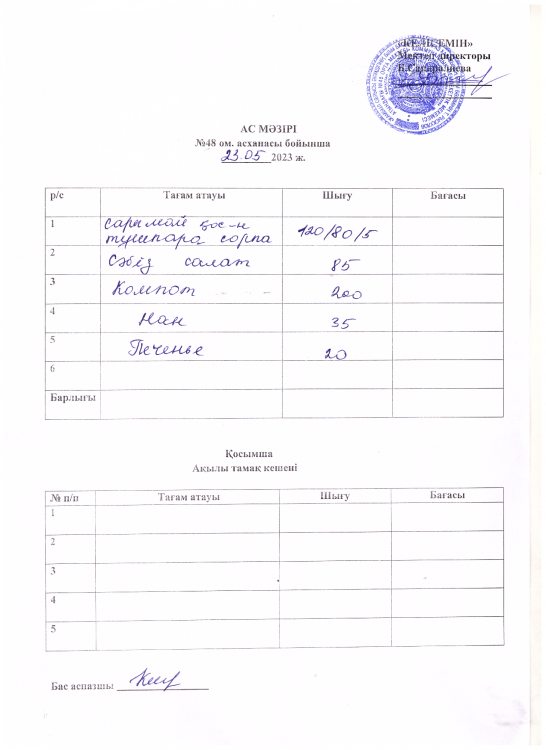 «КЕЛІСЕМІН»
Мектеп директоры
АС МӘЗІРІ
№48 ом. асханасы бойынша
23.05 2023 ж.
р/с Тағам атауы Шығу Бағасы
1 сарымай қос-н
тушпара сорпа 120/80/5
2 Сәбіз салат 85
3 Компот 200
4 Нан 35
5 Печенье 20
6
Барлығы
Қосымша
Ақылы тамақ кешені
№ п/п Тағам атауы Шығу Бағасы
1
2
3
4
5
Бас аспазшы